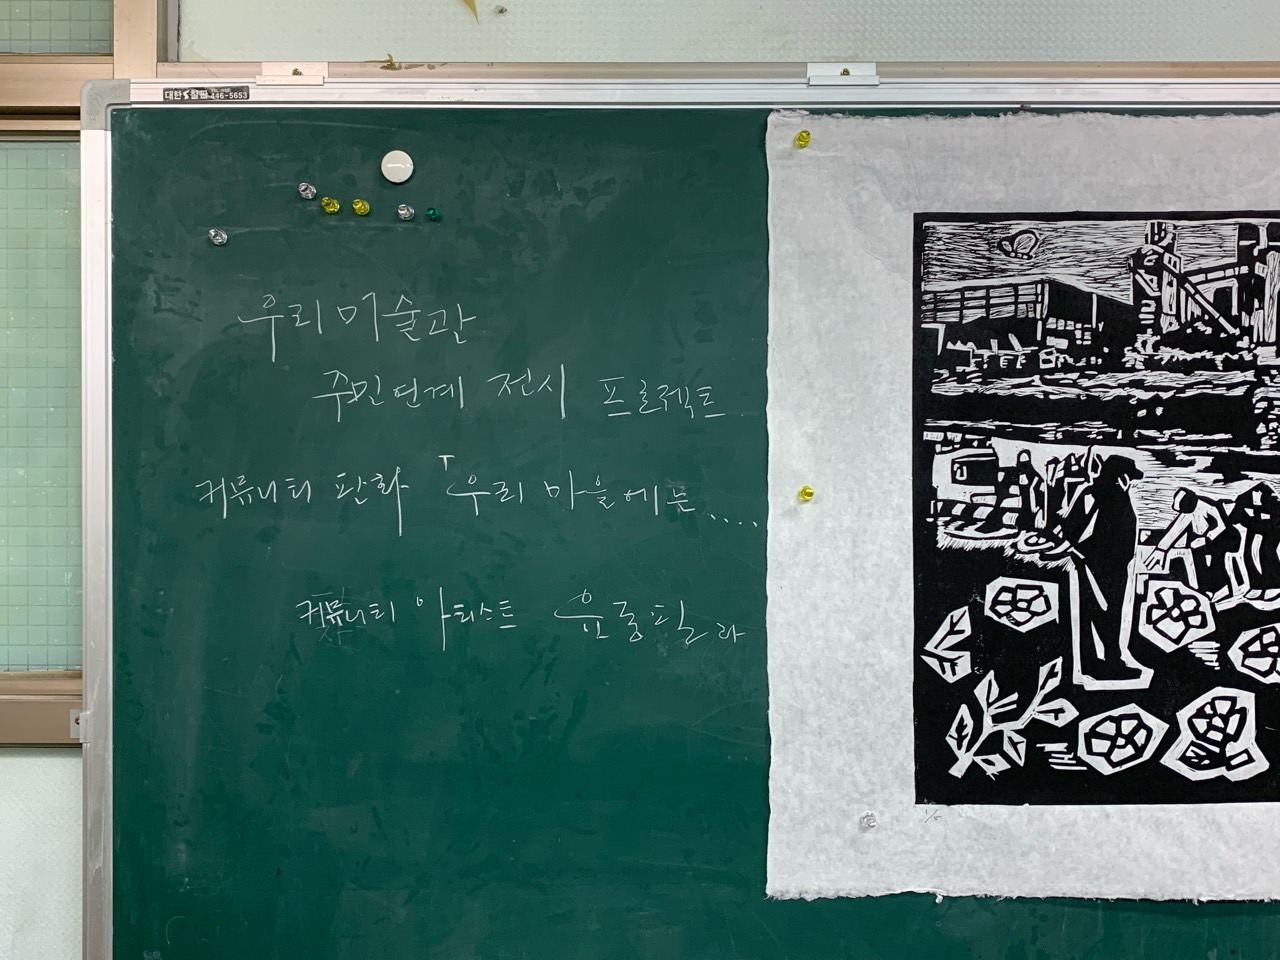 대한칠판 446-5653
우리미술관
주민단계 전시 프로젝트
커뮤니티 판화 「우리 마을에는....
커뮤니티 아티스트
1/5